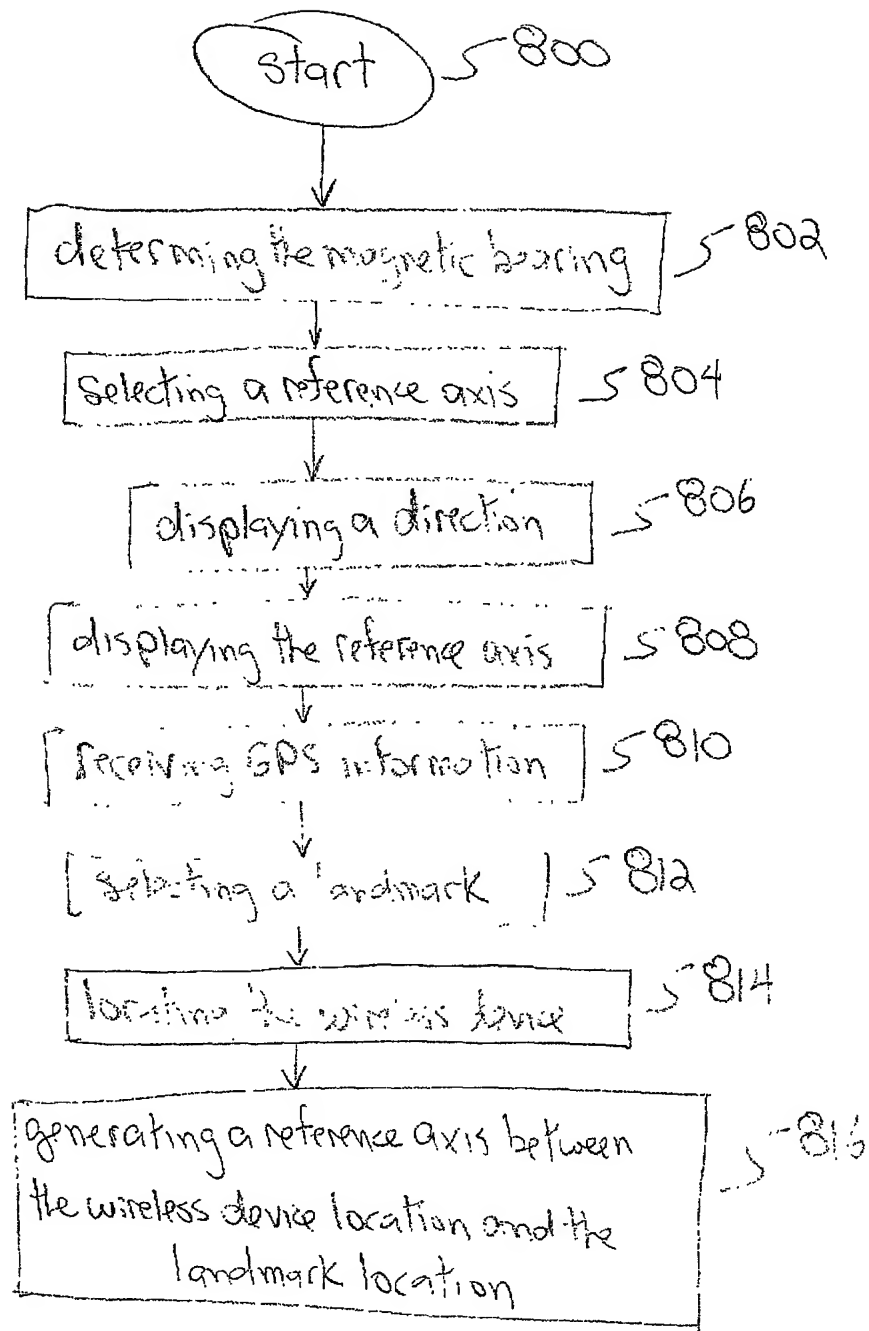 start 800
determing the magnetic bearing 802
selecting a reference axis 804
displaying a direction 806
displaying the reference axis 808
receiving GPS information 810
selecting a landmark 812
locating the wireless device 814
generating a reference axis between 816
the wireless device location and the
landmark location